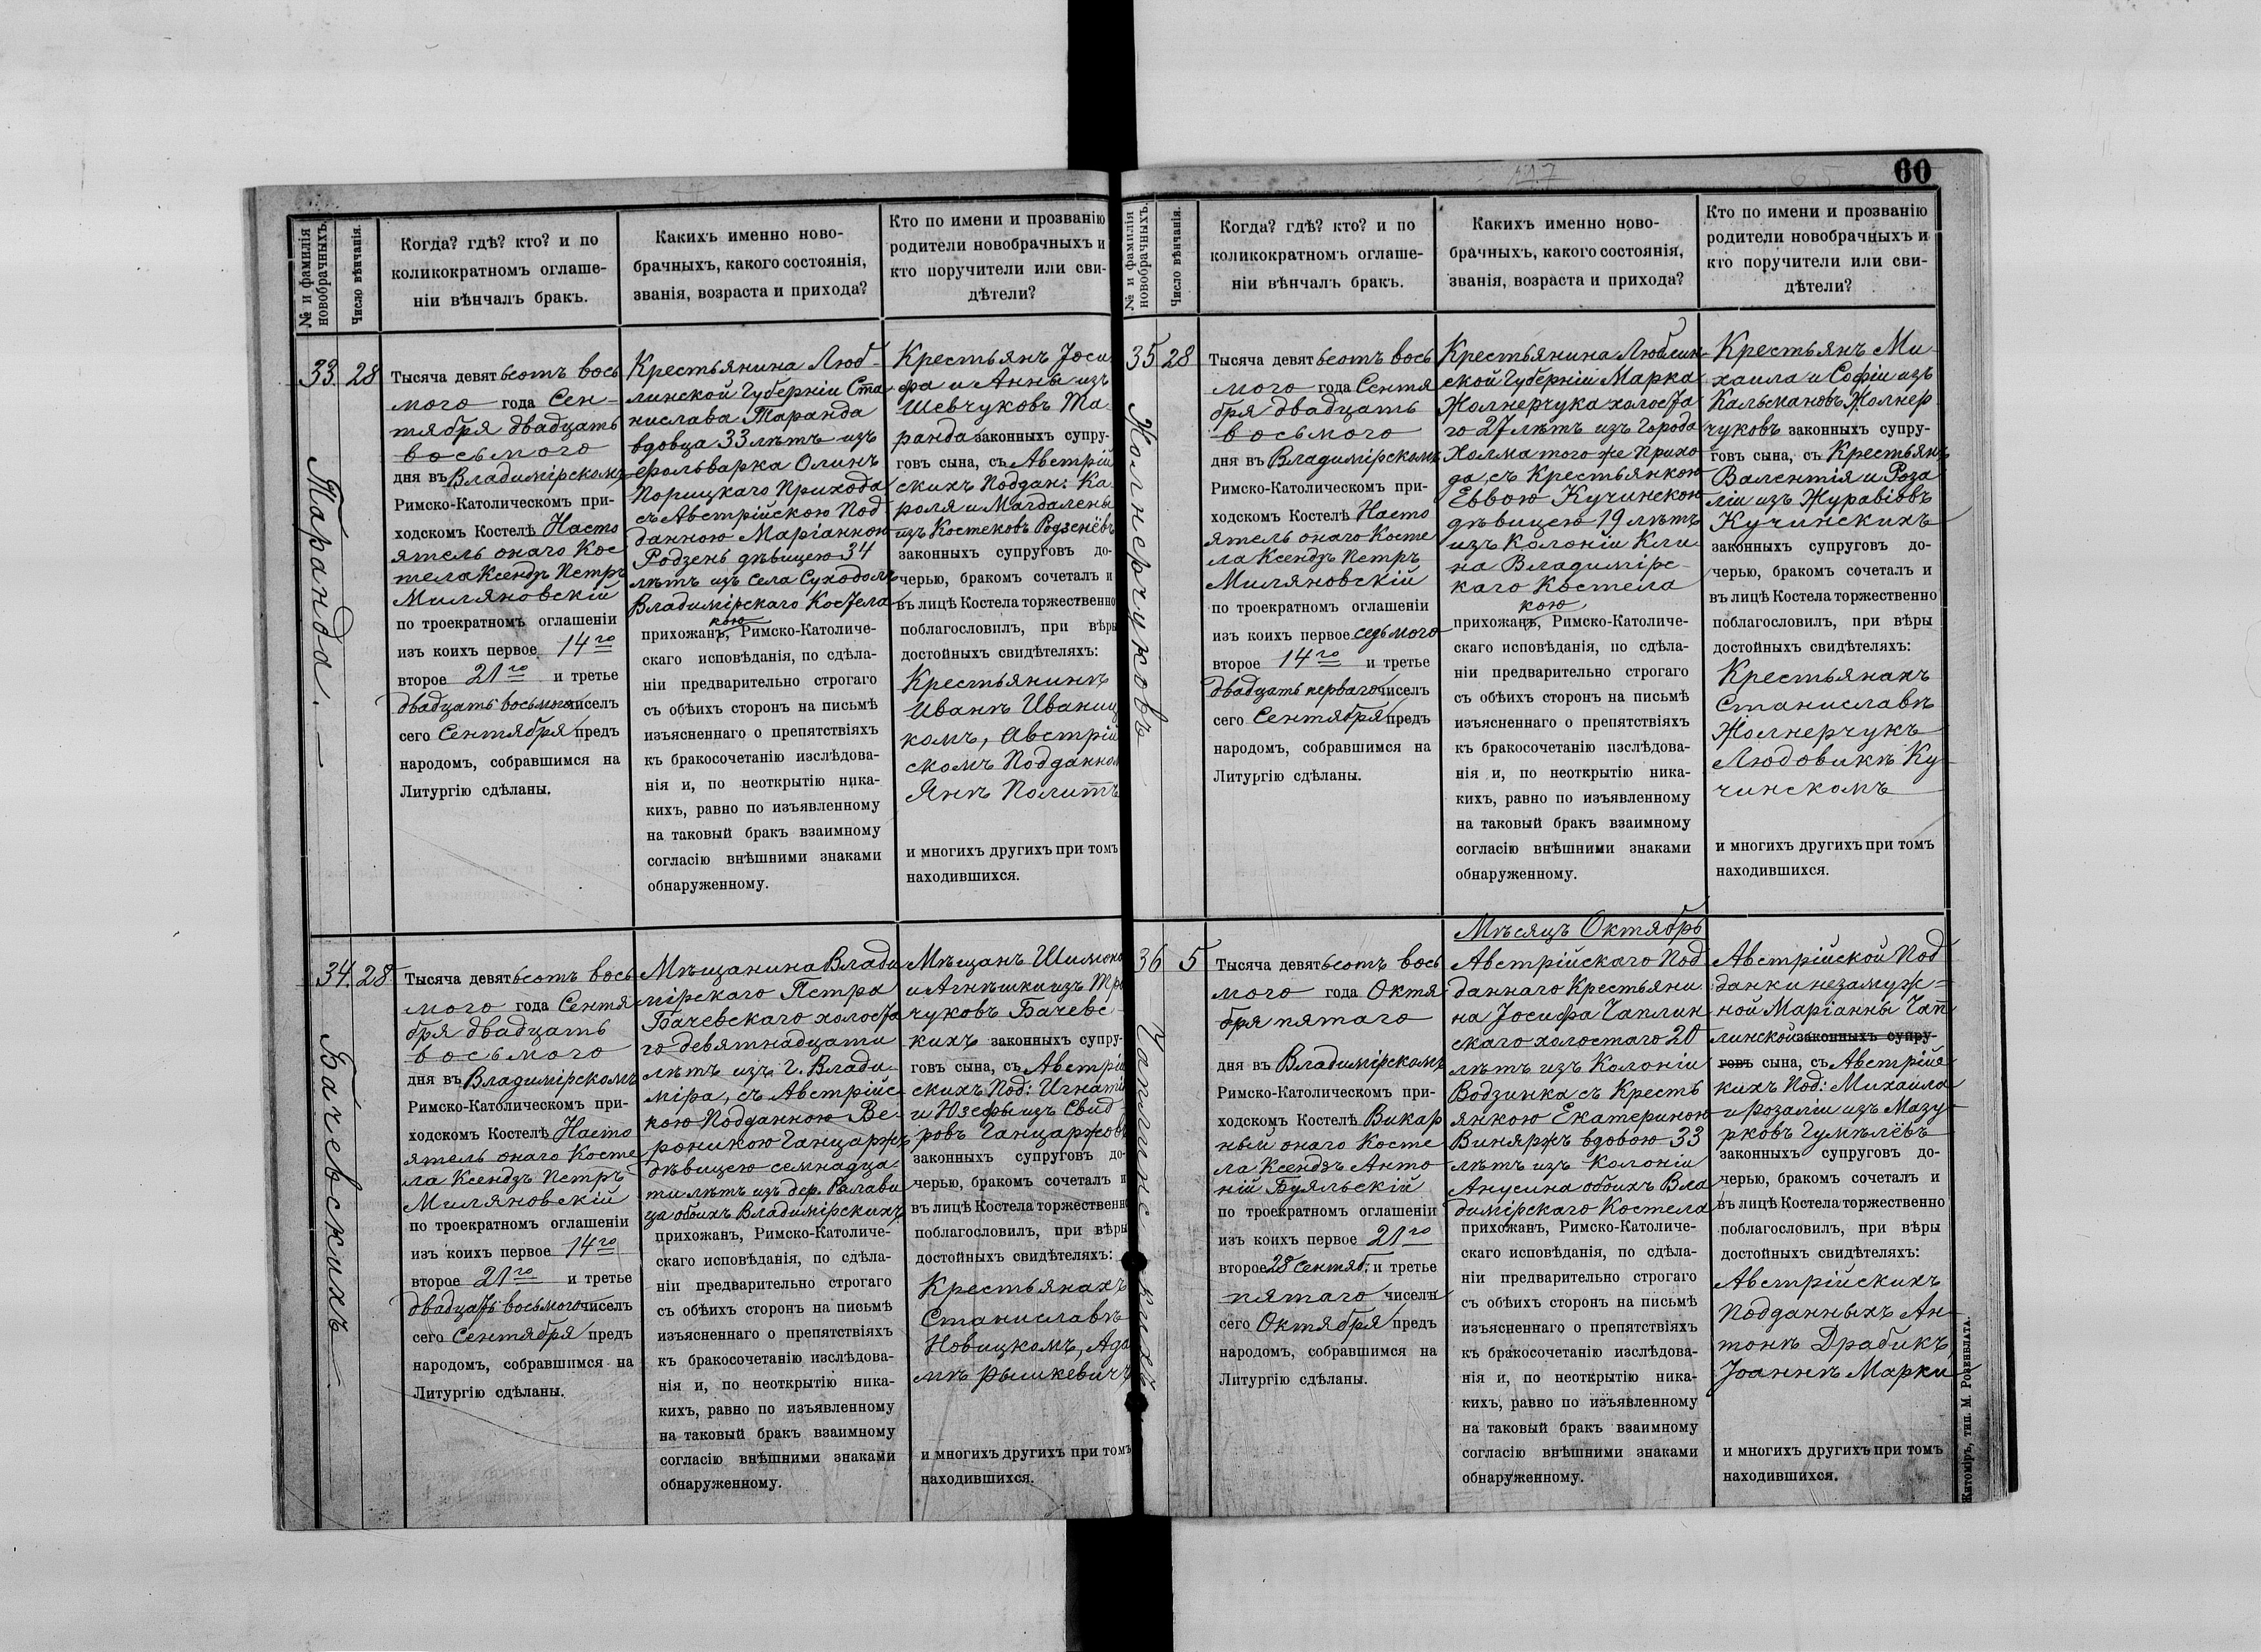 № и фамилія новобрачныхъ.
Число вѣнчанія.
Когда? гдѣ? кто? и по
коликократномъ оглаше-
ніи вѣнчалъ бракъ.
Какихъ именно ново-
брачныхъ, какого состоянія,
званія, возраста и прихода?
Кто по имени и прозванію
родители новобрачныхъ и
кто поручители или сви-
дѣтели?
33.
28
Таранда.
Тысяча девятьсотъ вось
мого года Сен-
тября двадцать
восьмого
дня въ Владимірскомъ
Римско-Католическомъ при-
ходскомъ Костелѣ Насто
ятель онаго Кос
тела Ксендзъ Петръ
Миляновскій
по троекратномъ оглашеніи
изъ коихъ первое 14го
второе 21го и третье
двадцать восьмого чиселъ
сего Сентября предъ
народомъ, собравшимся на
Литургію сдѣланы.
Крестьянина Люб-
линской Губерніи Ста
нислава Таранда
вдовца 33 лѣтъ изъ
фольварка Олинъ
Порицкаго Прихода
съ Австрійскою Под
данною Маріанною
Родзень дѣвицею 34
лѣтъ изъ села Суходолъ
Владимірскаго Костела
кою
прихожанъ, Римско-Католиче-
скаго исповѣданія, по сдѣла-
ніи предварительно строгаго
съ обѣихъ сторонъ на письмѣ
изъясненнаго о препятствіяхъ
къ бракосочетанію изслѣдова-
нія и, по неоткрытію ника-
кихъ, равно по изъявленному
на таковый бракъ взаимному
согласію внѣшними знаками
обнаруженному.
Крестьянъ Іоси
фа и Анны изъ
Шевчуковъ Та-
ранда законныхъ супру-
говъ сына, съ Австрій
скихъ Поддан: Ка-
роля и Магдалены
изъ Костековъ Родзенёвъ
законныхъ супруговъ до-
черью, бракомъ сочеталъ и
въ лицѣ Костела торжественно
поблагословилъ, при вѣры
достойныхъ свидѣтеляхъ:
Крестьянинѣ
Иванѣ Иваниц
комъ, Австрій
скомъ Подданном
Янѣ Политъ
и многихъ другихъ при томъ
находившихся.
34.
28
Бачевскихъ
Тысяча девятьсотъ вось
мого года Сентя
бря двадцать
восьмого
дня въ Владимірскомъ
Римско-Католическомъ при-
ходскомъ Костелѣ Насто
ятель онаго Косте
ла Ксендзъ Петръ
Миляновскій
по троекратномъ оглашеніи
изъ коихъ первое 14го
второе 21го и третье
двадцать восьмого чиселъ
сего Сентября предъ
народомъ, собравшимся на
Литургію сдѣланы.
Мѣщанина Влади
мірскаго Петра
Бачевскаго холоста
го девятнадцати
лѣтъ изъ г. Влади-
міра, съ Австрійс
кою Подданною Ве-
роникою Ганцаржъ
дѣвицею семнадца
ти лѣтъ изъ дер.
ца обоихъ Владимірскихъ
прихожанъ, Римско-Католиче-
скаго исповѣданія, по сдѣла-
ніи предварительно строгаго
съ обѣихъ сторонъ на письмѣ
изъясненнаго о препятствіяхъ
къ бракосочетанію изслѣдова-
нія и, по неоткрытію ника-
кихъ, равно по изъявленному
на таковый бракъ взаимному
согласію внѣшними знаками
обнаруженному.
Мѣщанъ Шимона
и Агнѣшки изъ Тро
чуковъ Бачевс-
кихъ законныхъ супру-
говъ сына, съ Австрій
скихъ Под: Игнатія
и Юзефы изъ Свид-
ровъ Ганцаржовъ
законныхъ супруговъ до-
черью, бракомъ сочеталъ и
въ лицѣ Костела торжественно
поблагословилъ, при вѣры
достойныхъ свидѣтеляхъ:
Крестьянахъ
Станиславѣ
Новицкомъ, Ада
мѣ Рышкевичъ
и многихъ другихъ при томъ
находившихся.
60
№ и фамилія новобрачныхъ.
Число вѣнчанія.
Когда? гдѣ? кто? и по
коликократномъ оглаше-
ніи вѣнчалъ бракъ.
Какихъ именно ново-
брачныхъ, какого состоянія,
званія, возраста и прихода?
Кто по имени и прозванію
родители новобрачныхъ и
кто поручители или сви-
дѣтели?
35
28
Жолнерчуковъ
Тысяча девятьсотъ вось
мого года Сентя
бря двадцать
восьмого
дня въ Владимірскомъ
Римско-Католическомъ при-
ходскомъ Костелѣ Насто
ятель онаго Косте
ла Ксендзъ Петръ
Миляновскій
по троекратномъ оглашеніи
изъ коихъ первое седьмого
второе 14го и третье
двадцать перваго чиселъ
сего Сентября предъ
народомъ, собравшимся на
Литургію сдѣланы.
Крестьянина Люблин-
ской Губерніи Марка
Жолнерчука холоста
го 27 лѣтъ изъ города
Холма того же Прихо
да, съ Крестьянкою
Еввою Кучинскою
дѣвицею 19 лѣтъ
изъ Колоніи Кли-
на Владимірс-
каго Костела
кою
прихожанъ, Римско-Католиче-
скаго исповѣданія, по сдѣла-
ніи предварительно строгаго
съ обѣихъ сторонъ на письмѣ
изъясненнаго о препятствіяхъ
къ бракосочетанію изслѣдова-
нія и, по неоткрытію ника-
кихъ, равно по изъявленному
на таковый бракъ взаимному
согласію внѣшними знаками
обнаруженному.
Крестьянъ Ми-
хаила и Софіи изъ
Кальмановъ Жолнер
чуковъ законныхъ супру-
говъ сына, съ Крестьянъ
Валентія и Роза
ліи изъ Журавіовъ
Кучинскихъ
законныхъ супруговъ до-
черью, бракомъ сочеталъ и
въ лицѣ Костела торжественно
поблагословилъ, при вѣры
достойныхъ свидѣтеляхъ:
Крестьянахъ
Станиславѣ
Жолнерчукъ
Людовикѣ Ку-
чинскомъ
и многихъ другихъ при томъ
находившихся.
Мѣсяцъ Октябрь
36
5
Чаплинскихъ
Тысяча девятьсотъ вось
мого года Октя
бря пятаго
дня въ Владимірскомъ
Римско-Католическомъ при-
ходскомъ Костелѣ Викар
ный онаго Косте
ла Ксендзъ Анто
ній Буяльскій
по троекратномъ оглашеніи
изъ коихъ первое 21го
второе 28 Сентяб: и третье
пятаго чиселъ
сего Октября предъ
народомъ, собравшимся на
Литургію сдѣланы.
Австрійскаго Под
даннаго Крестьяни
на Іосифа Чаплин
скаго холостаго 20
лѣтъ изъ Колоніи
Водзинка съ Кресть
янкою Екатериною
Виняржъ вдовою 33
лѣтъ изъ Колоніи
Анусина обоихъ Вла
димірскаго Костела
прихожанъ, Римско-Католиче-
скаго исповѣданія, по сдѣла-
ніи предварительно строгаго
съ обѣихъ сторонъ на письмѣ
изъясненнаго о препятствіяхъ
къ бракосочетанію изслѣдова-
нія и, по неоткрытію ника-
кихъ, равно по изъявленному
на таковый бракъ взаимному
согласію внѣшними знаками
обнаруженному.
Австрійской Под
данки незамуж=
ной Маріанны Чап
линской законныхъ супру-
говъ сына, съ Австрійс
кихъ Под: Михаила
и розаліи изъ Мазу-
рковъ Гумѣлёвъ
законныхъ супруговъ до-
черью, бракомъ сочеталъ и
въ лицѣ Костела торжественно
поблагословилъ, при вѣры
достойныхъ свидѣтеляхъ:
Австрійскихъ
Подданныхъ Ан-
тонѣ Драбикъ,
Іоаннѣ Марки
и многихъ другихъ при томъ
находившихся.
Житоміръ, тип. М. Розенблата.